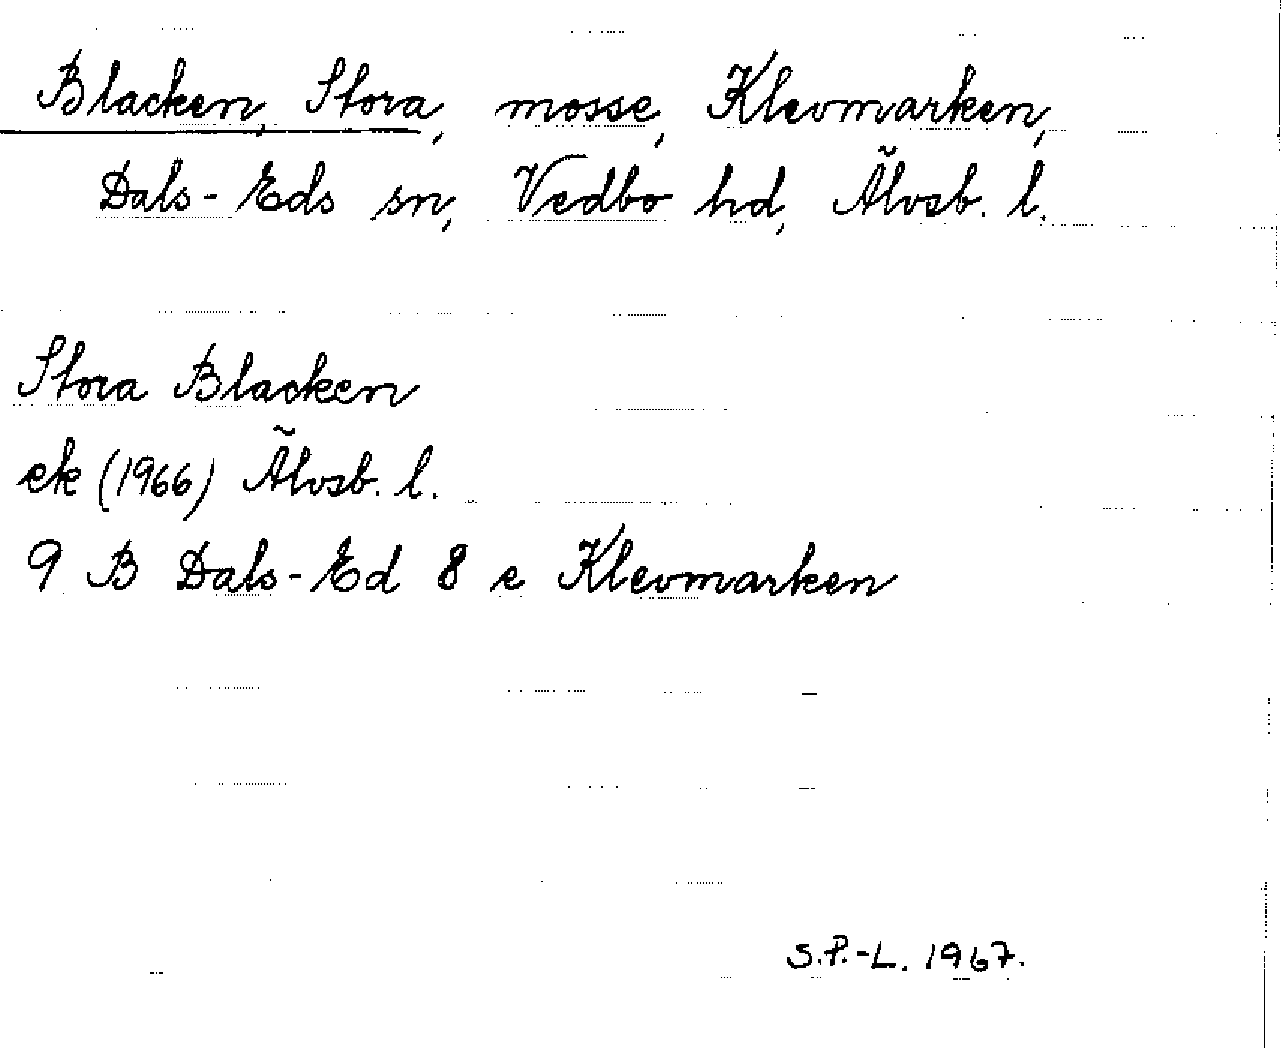 Blacken, Stora, mosse, Klevmarken,
Dals-Eds sn, Vedbo hd, Älvsb. l.
Stora Blacken
ek (1966) Älvsb. l.
9 B Dals-Ed 8 e Klevmarken
S.P.-L. 1967.